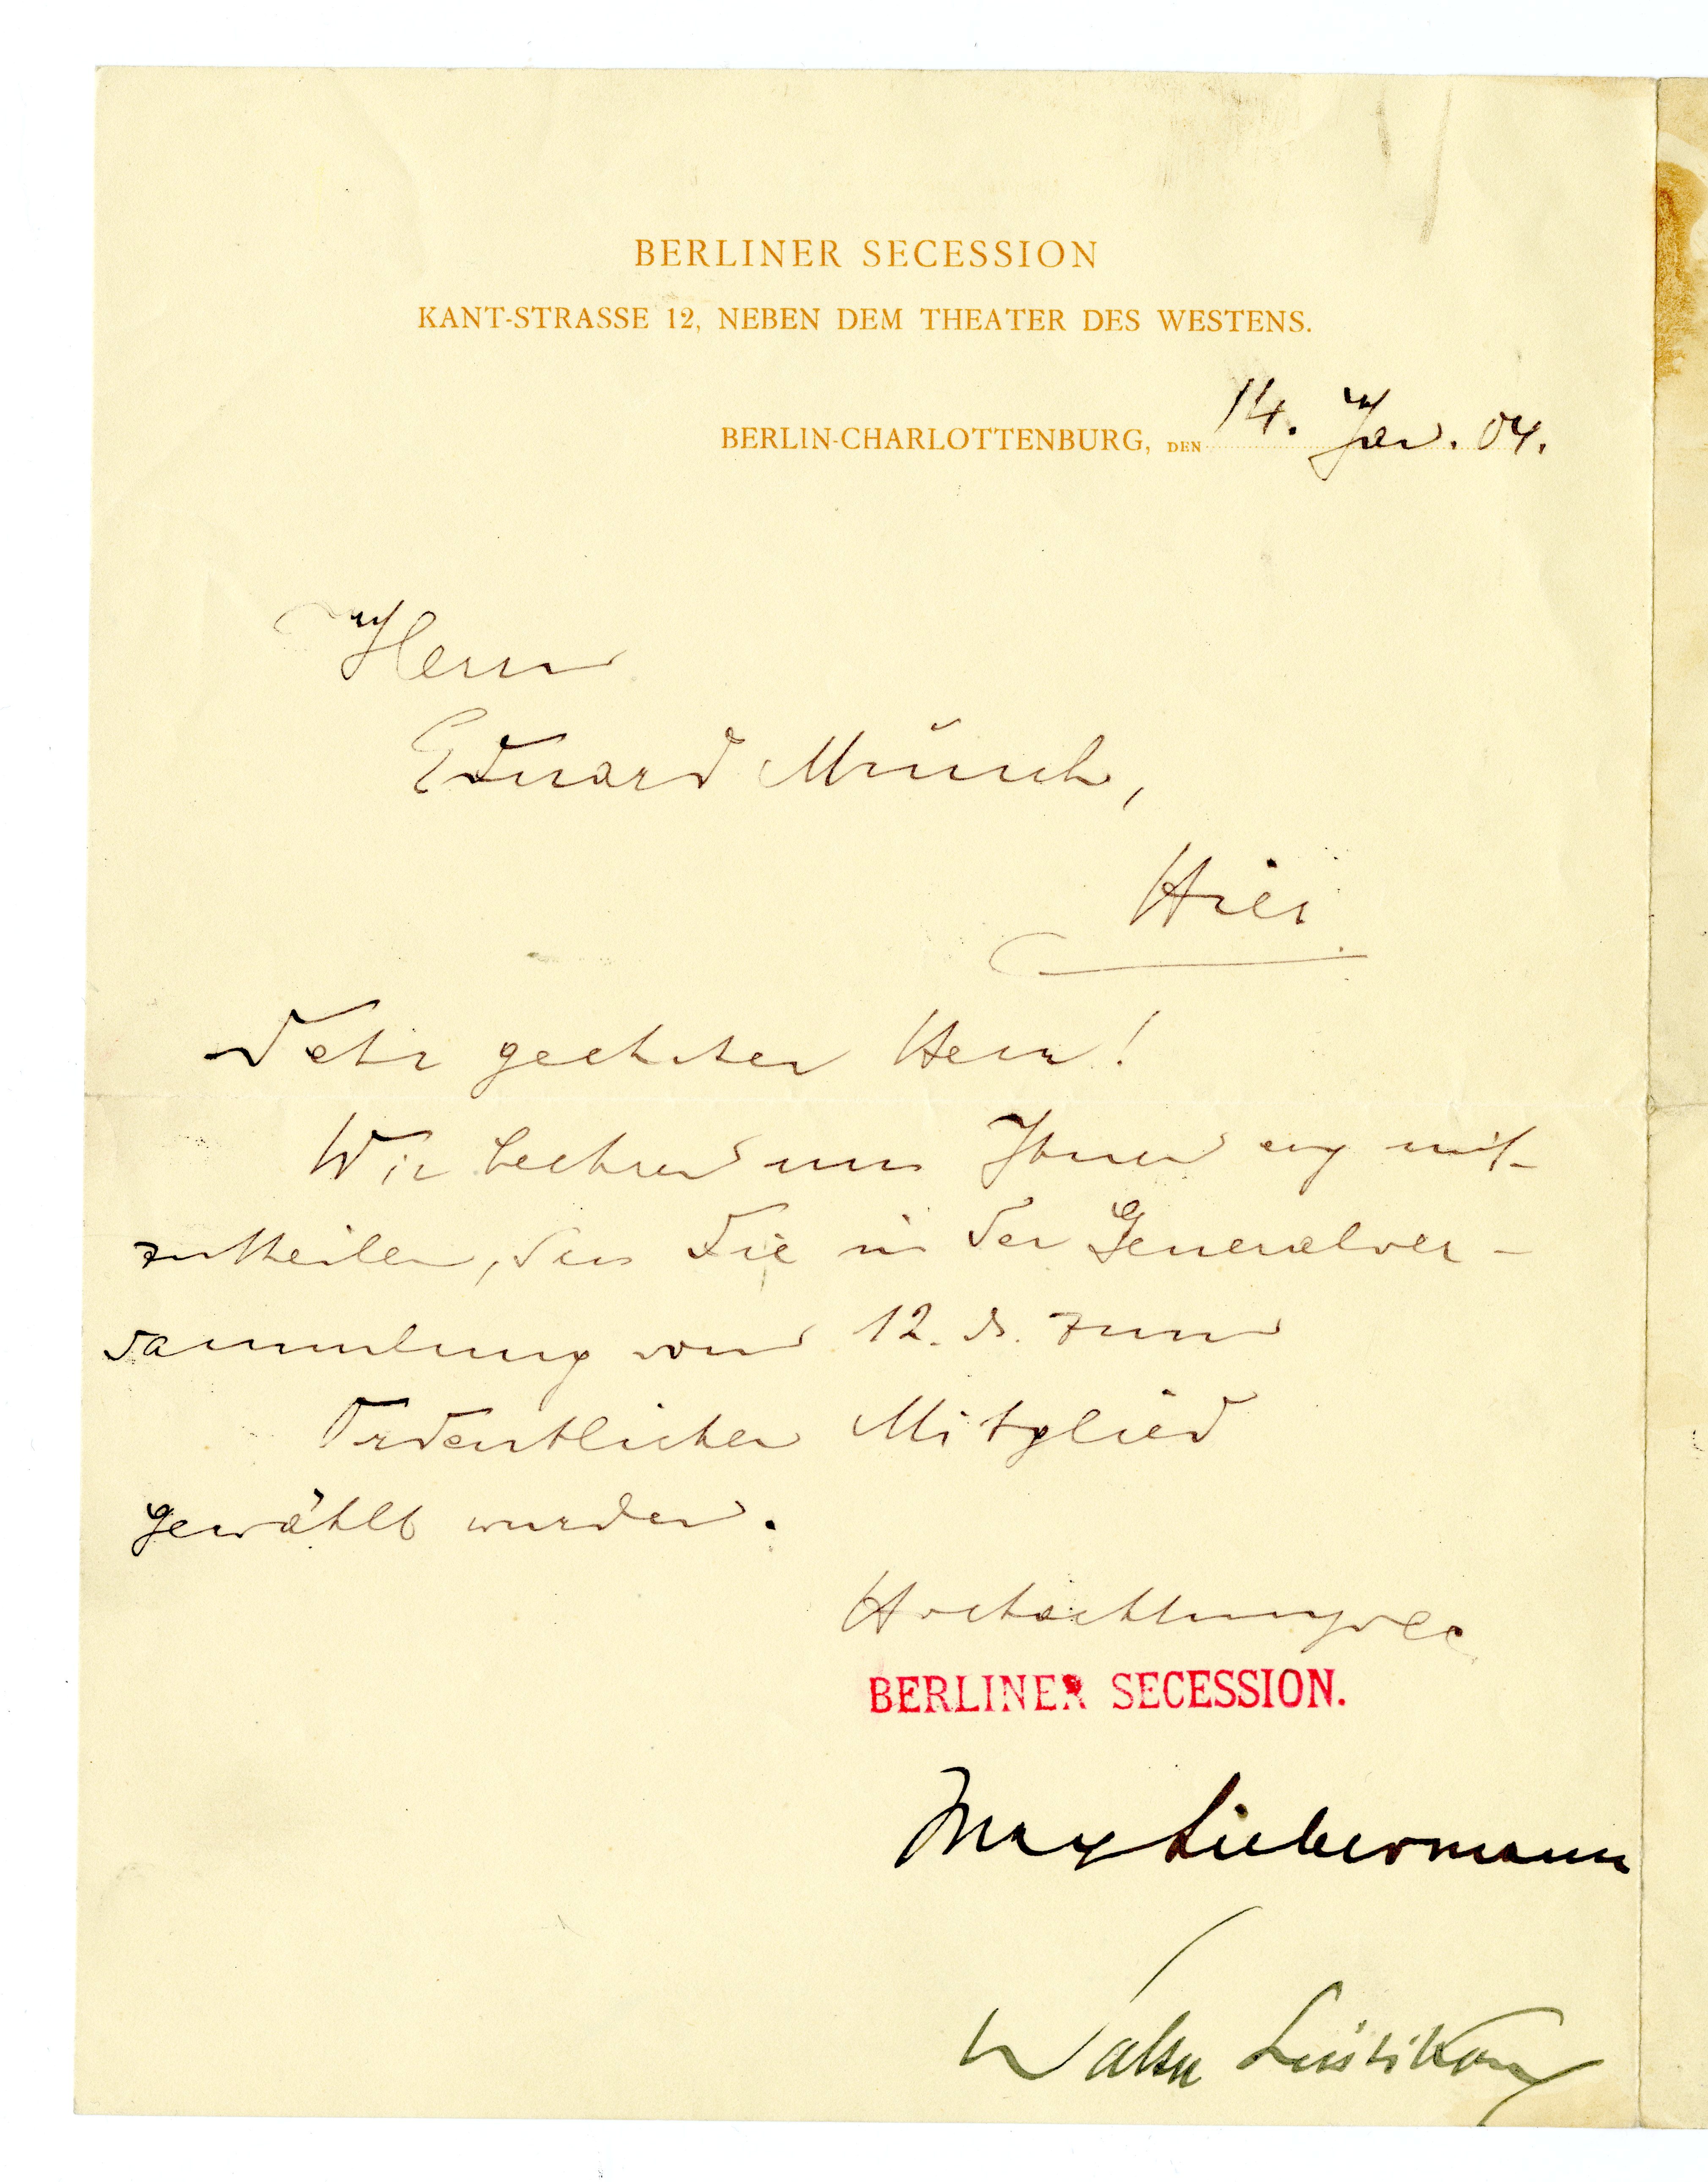 BERLINER SECESSION
KANT-STRASSE 12, NEBEN DEM THEATER DES WESTENS.
BERLIN-CHARLOTTENBURG, DEN 14. Jan. 04.
Herrn
Eduard Münch,
Hier
Sehr geehrter Herr!
Wir beehren uns Ihnen erg mit-
zutheilen, dass Sie in der Generalver-
sammlung vom 12. ds. zum
Ordentlichen Mitglied
gewählt wurden.
Hochachtungsvoll
BERLINER SECESSION.
Max Liebermann
Walter Leistikow